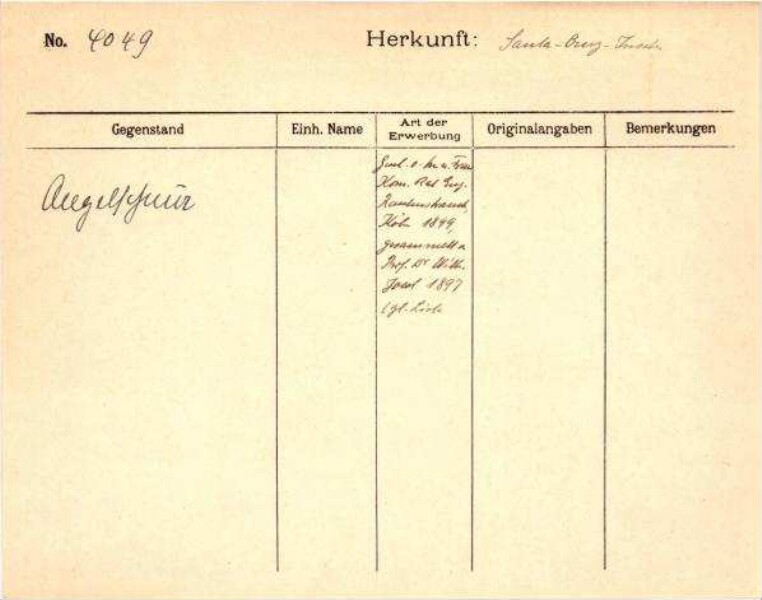 No. 4049 Herkunft: Santa-Cruz-Inseln
Gegenstand Einh. Name Art der Erwerbung Originalangaben Bemerkungen
Angelschnur
Frau
Kom. Rat Eug.
Rautenstrauch,
Köln 1899,
gesammelt v.
Prof. Dr Wilh.
Joest 1897
Vgl. Liste